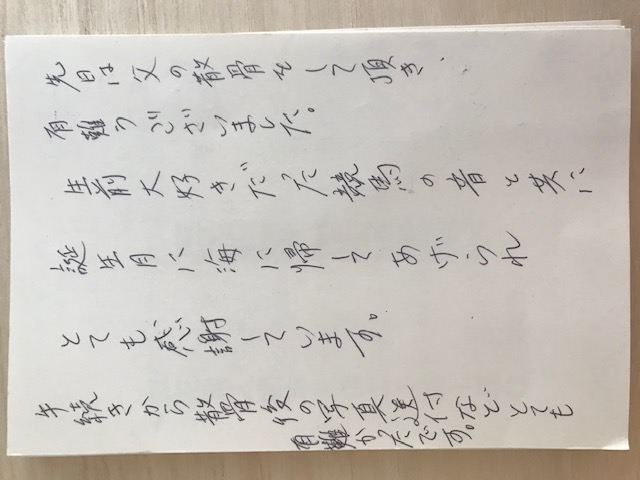 先日は父の散骨をして頂き、
有難うございました。
生前大好きだった競馬の音と共に
誕生月に海に帰してあげられ
とても感謝しています。
手続きから散骨後の写真送付などとても
有難かったです。